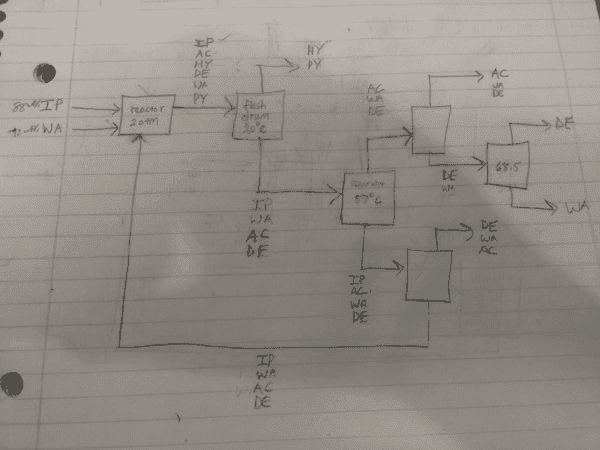 IP
AC
HY
DE
WA
PY
HY
PY
88 wt% IP
WA
reactor
2 atm
flash
drum
20°C
AC
WA
DE
AC
WA
DE
DE
68.5
WA
DE
WA
57°C
IP
WA
AC
DE
DE
WA
AC
IP
AC
WA
DE
IP
WA
AC
DE